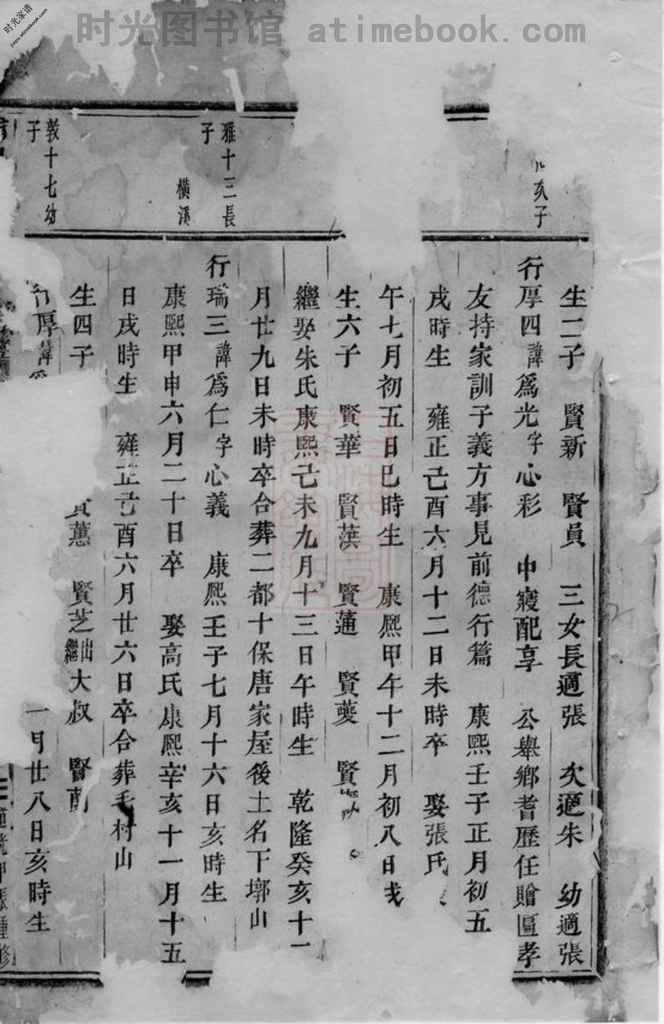 时光图书馆 atimebook.com
时光家谱
亥子
雅十三長
子
橫溪
敦十七幼
子
生二子 賢新 賢員 三女長適張 次適朱 幼適張
行厚四諱爲光字心彩 中寢配享 公舉鄉耆歷任贈匾孝
友持家訓子義方事見前德行篇 康熙壬子正月初五
戌時生 雍正己酉六月十二日未時卒 娶張氏
午七月初五日巳時生 康熙甲午十二月初八日戌
生六子 賢華 賢蓮 賢夔 賢
繼娶朱氏康熙己未九月十三日午時生 乾隆癸亥十二
月廿九日未時卒合葬二都十保唐家屋後土名下墎山
行瑞三諱爲仁字心義 康熙壬子七月十六日亥時生
康熙甲申六月二十日卒 娶高氏康熙辛亥十一月十五
日戌時生 雍正己酉六月廿六日卒合葬毛村山
生四子 蕙 賢芝出繼大叔 賢蘭
行厚諱 一月廿八日亥時生